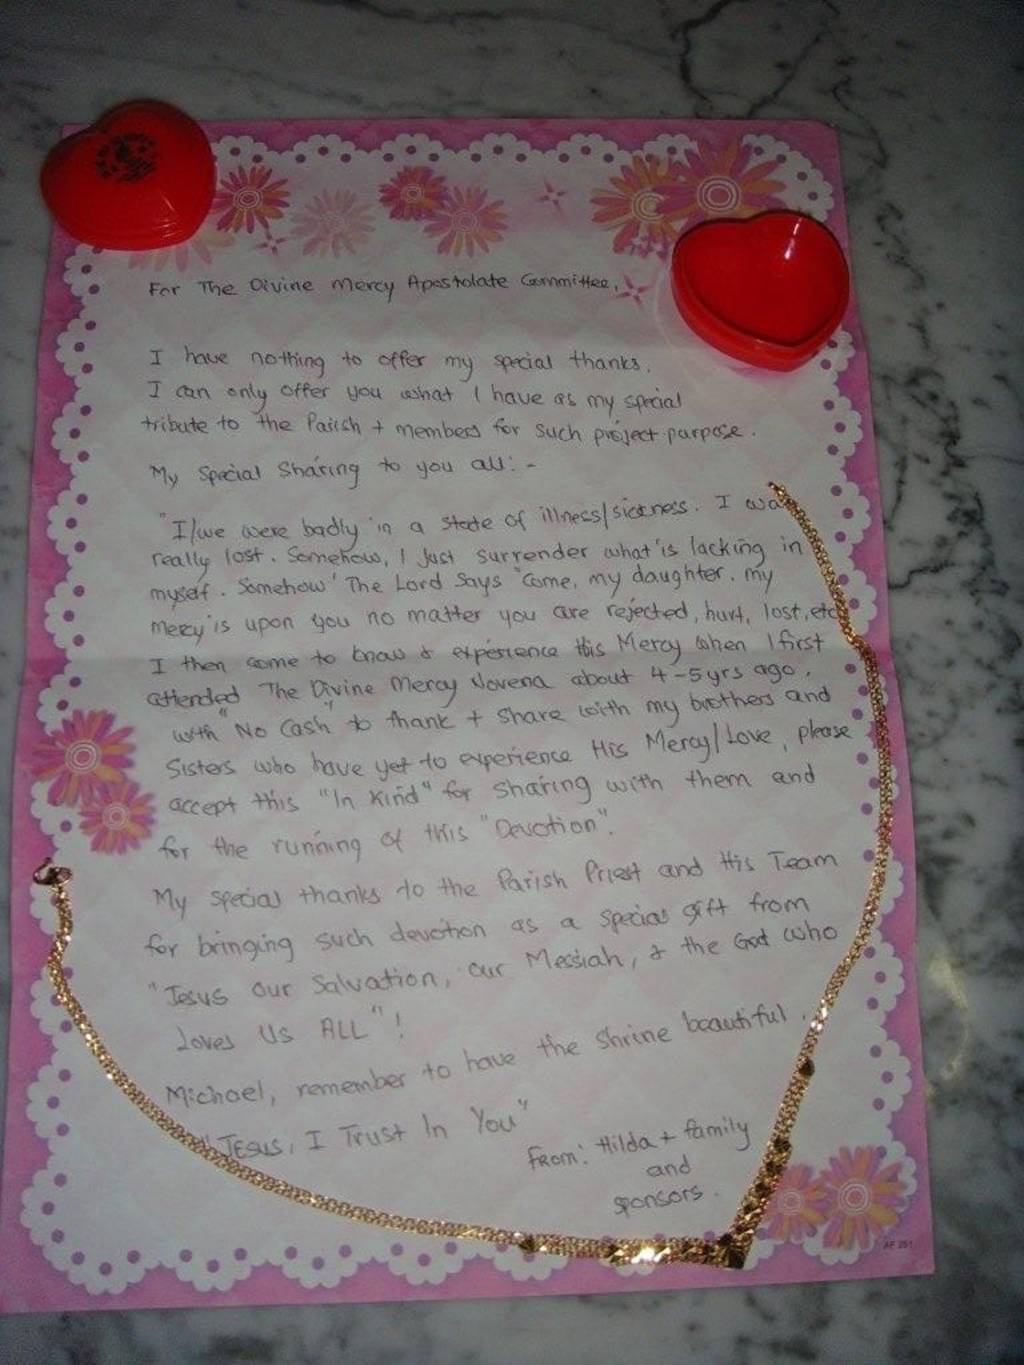 For The Divine Mercy Apostolate Committee,
I have nothing to offer my special thanks.
I can only offer you what I have as my special
tribute to the Parish + members for such project purpose.
My Special Sharing to you all: -
"I/we were badly in a state of illness/sickness. I was
really lost. Somehow, I just surrender what is lacking in
myself. Somehow 'The Lord Says "Come, my daughter, my
mercy is upon you no matter you are rejected, hurt, lost, etc
I then come to know & experience this Mercy when I first
attended The Divine Mercy Novena about 4-5yrs ago.
with "No Cash" to thank + share with my brothers and
Sisters who have yet to experience His Mercy/Love, please
accept this "In Kind" for sharing with them and
for the running of this "Devotion".
My special thanks to the Parish Priest and His Team
for bringing such devotion as a special gift from
"Jesus our Salvation, our Messiah, & the God who
Loves Us ALL"!
Michael, remember to have the shrine beautiful.
"JESUS, I Trust In You"
From: Hilda + family
and
sponsors.